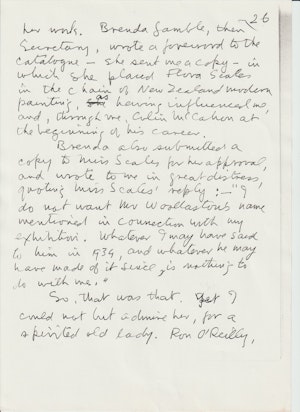 26
her words. Brenda Gamble, then
Secretary, wrote a foreword to the
catalogue – she sent me a copy – in
which she placed Flora Scales
in the chain of New Zealand modern
painting, as having influenced me
and, through me, Colin McCahon at
the beginning of his career.
Brenda also submitted a
copy to Miss Scales for her approval,
and wrote to me in great distress,
quoting Miss Scales' reply :– "I
do not want Mr Woollaston's name
mentioned in connection with my
exhibition. Whatever I may have said
to him in 1934, and whatever he may
have made of it since, is nothing to
do with me."
So, that was that. Yet I
could not but admire her, for a
spirited old lady. Ron O'Reilly,